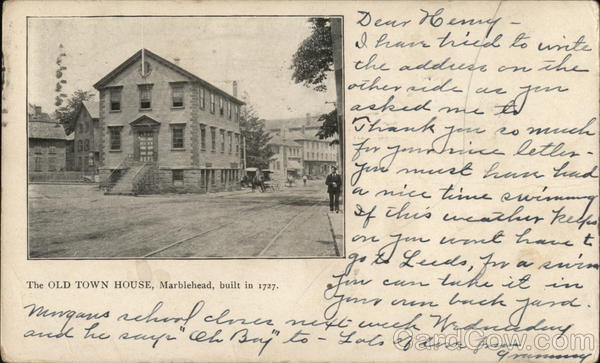 Dear Henry -
I have tried to write
the address on the
other side as you
asked me to
Thank you so much
for your nice letter -
you must have had
a nice time swimming
If this weather keeps
on you wont have to
go to Leeds, for a swim
you can take it in
your own back yard.
The OLD TOWN HOUSE, Marblehead, built in 1727.
Morgans school closes next week Wednesday
and he says "Oh Boy" to - Lots of love from
Grammy
CardCow.com